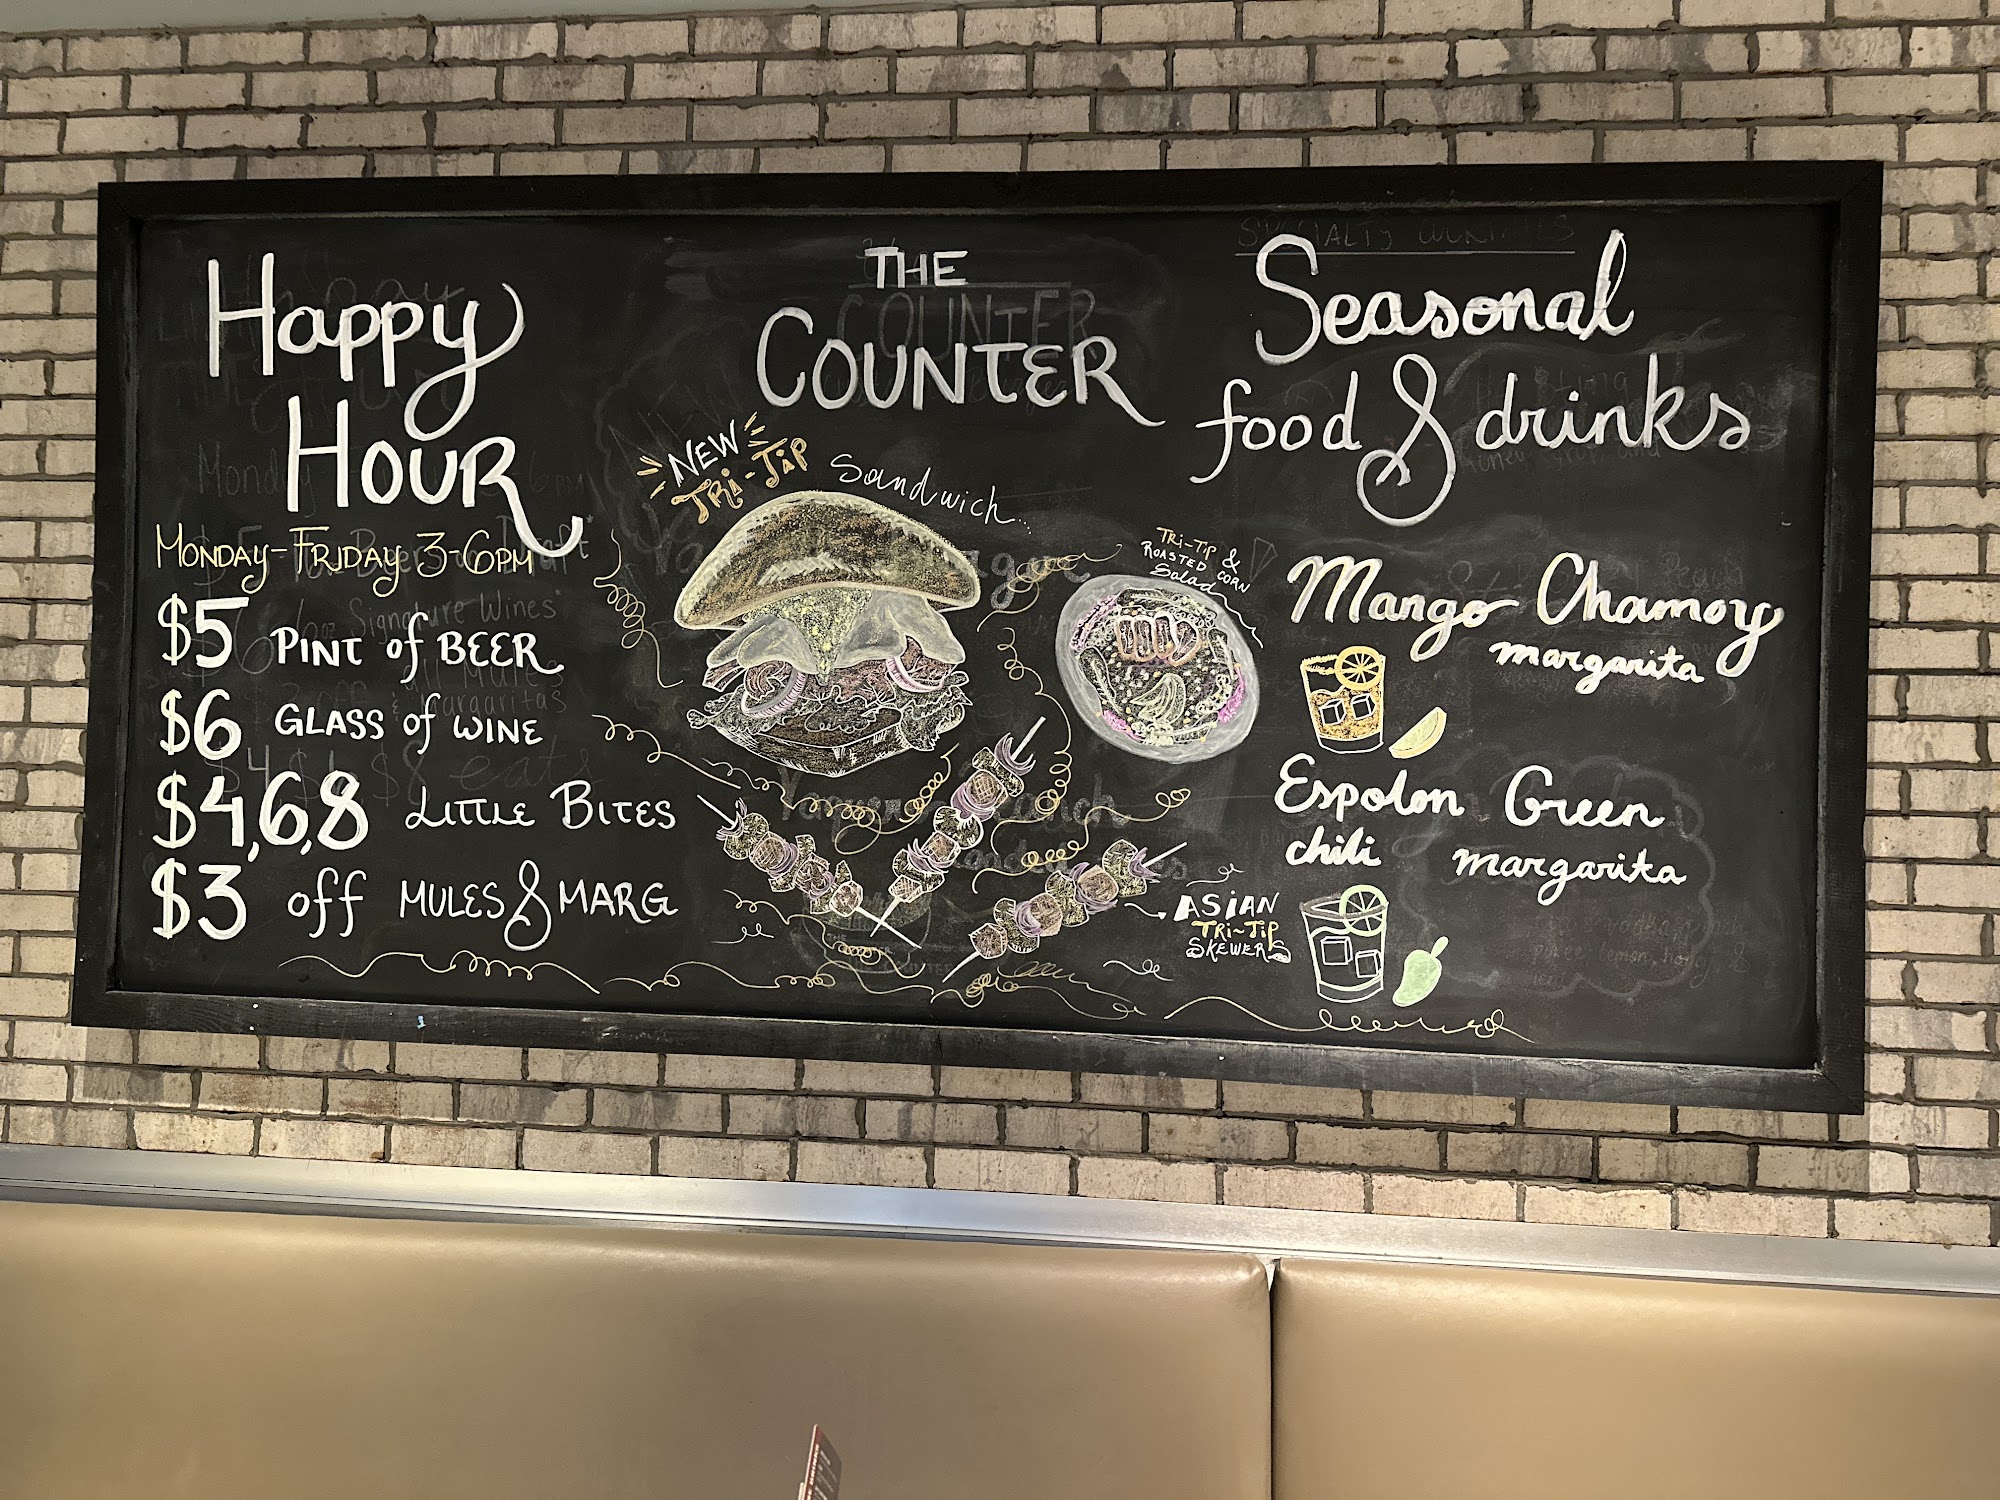 Happy
HOUR
MONDAY-FRIDAY 3-6PM
$5 PINT of BEER
$6 GLASS of WINE
$4,6,8 LITTLE BITES
$3 off MULES & MARG
THE
COUNTER
NEW
TRI-TIP
Sandwich...
TRI-TIP &
ROASTED CORN
Salad
ASIAN
TRI-TIP
SKEWERS
Seasonal
food & drinks
Mango Chamoy
margarita
Espolon Green
chili margarita